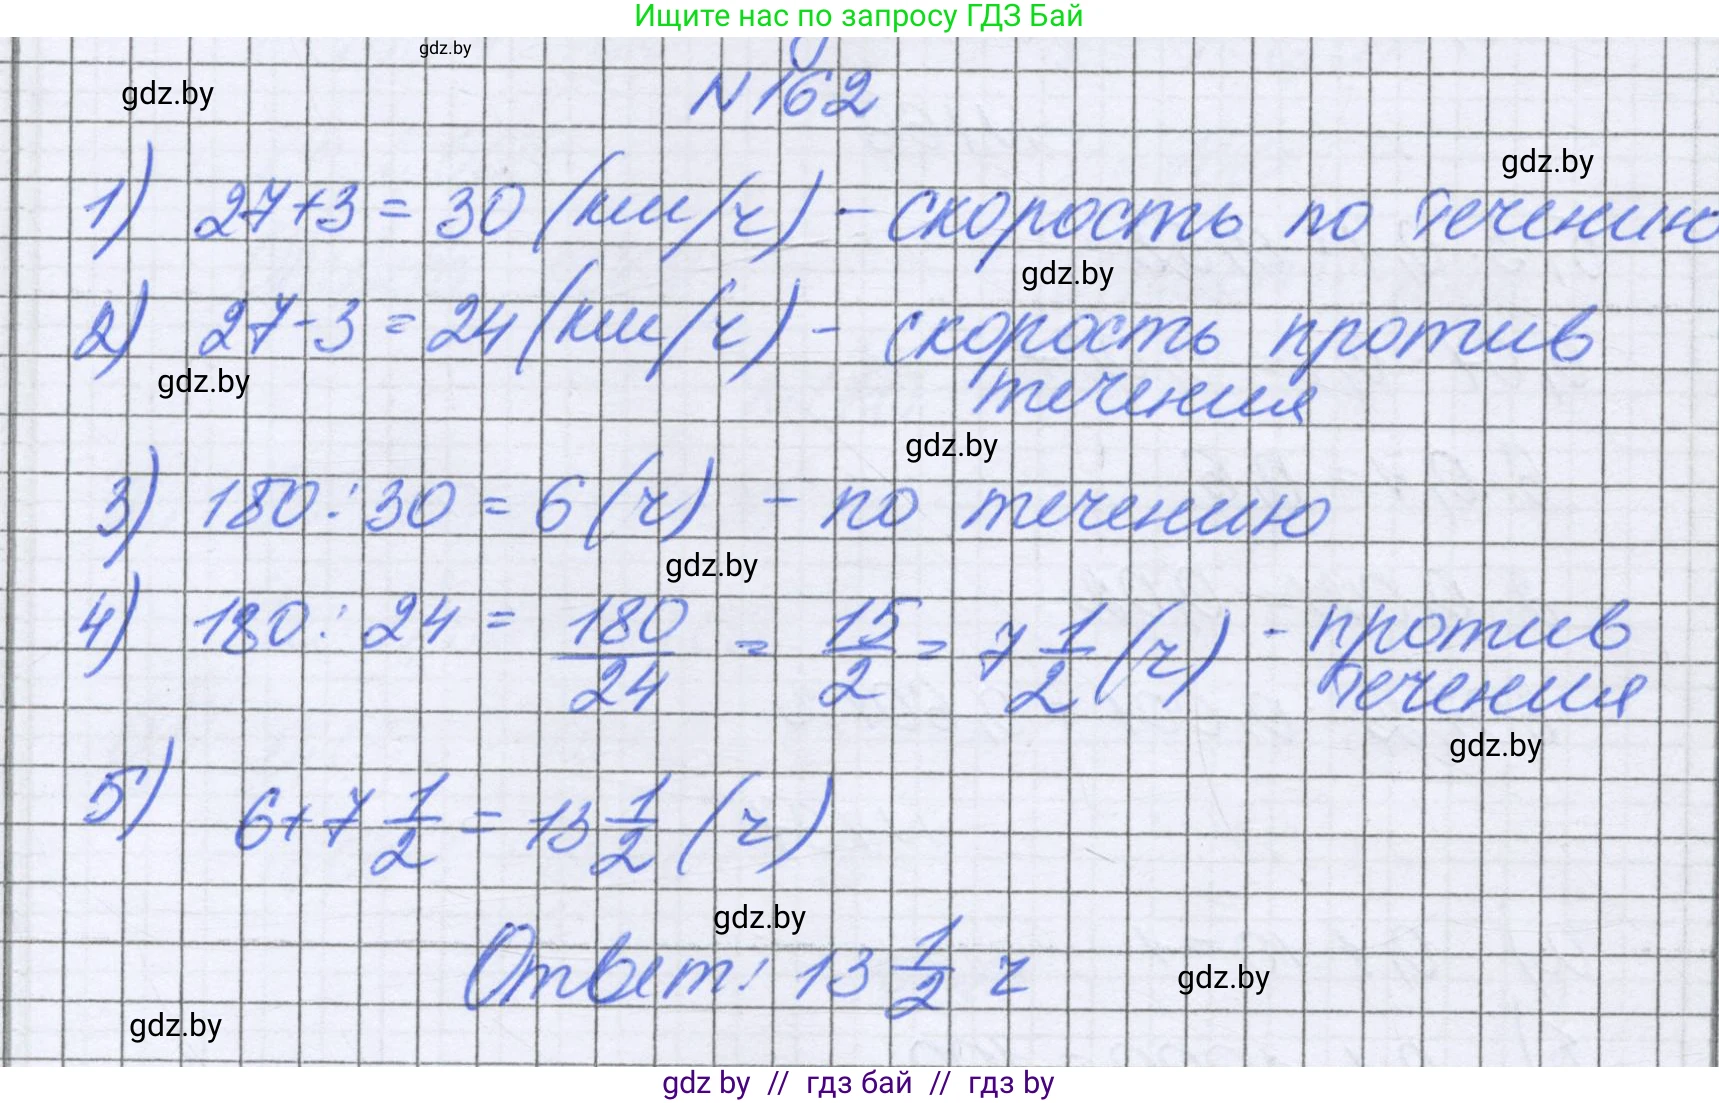 Ищите нас по запросу ГДЗ Бай
gdz.by
N 162
gdz.by
gdz.by
1) 27+3 = 30 (км/ч) - скорость по течению
gdz.by
2) 27-3 = 24 (км/ч) - скорость против
течения
gdz.by
gdz.by
3) 180 : 30 = 6 (ч) - по течению
gdz.by
4) 180 : 24 = 180/24 = 15/2 = 7 1/2 (ч) - против
течения
gdz.by
5) 6+7 1/2 = 13 1/2 (ч)
gdz.by
Ответ: 13 1/2 ч
gdz.by
gdz.by
gdz by // гдз бай // гдз by